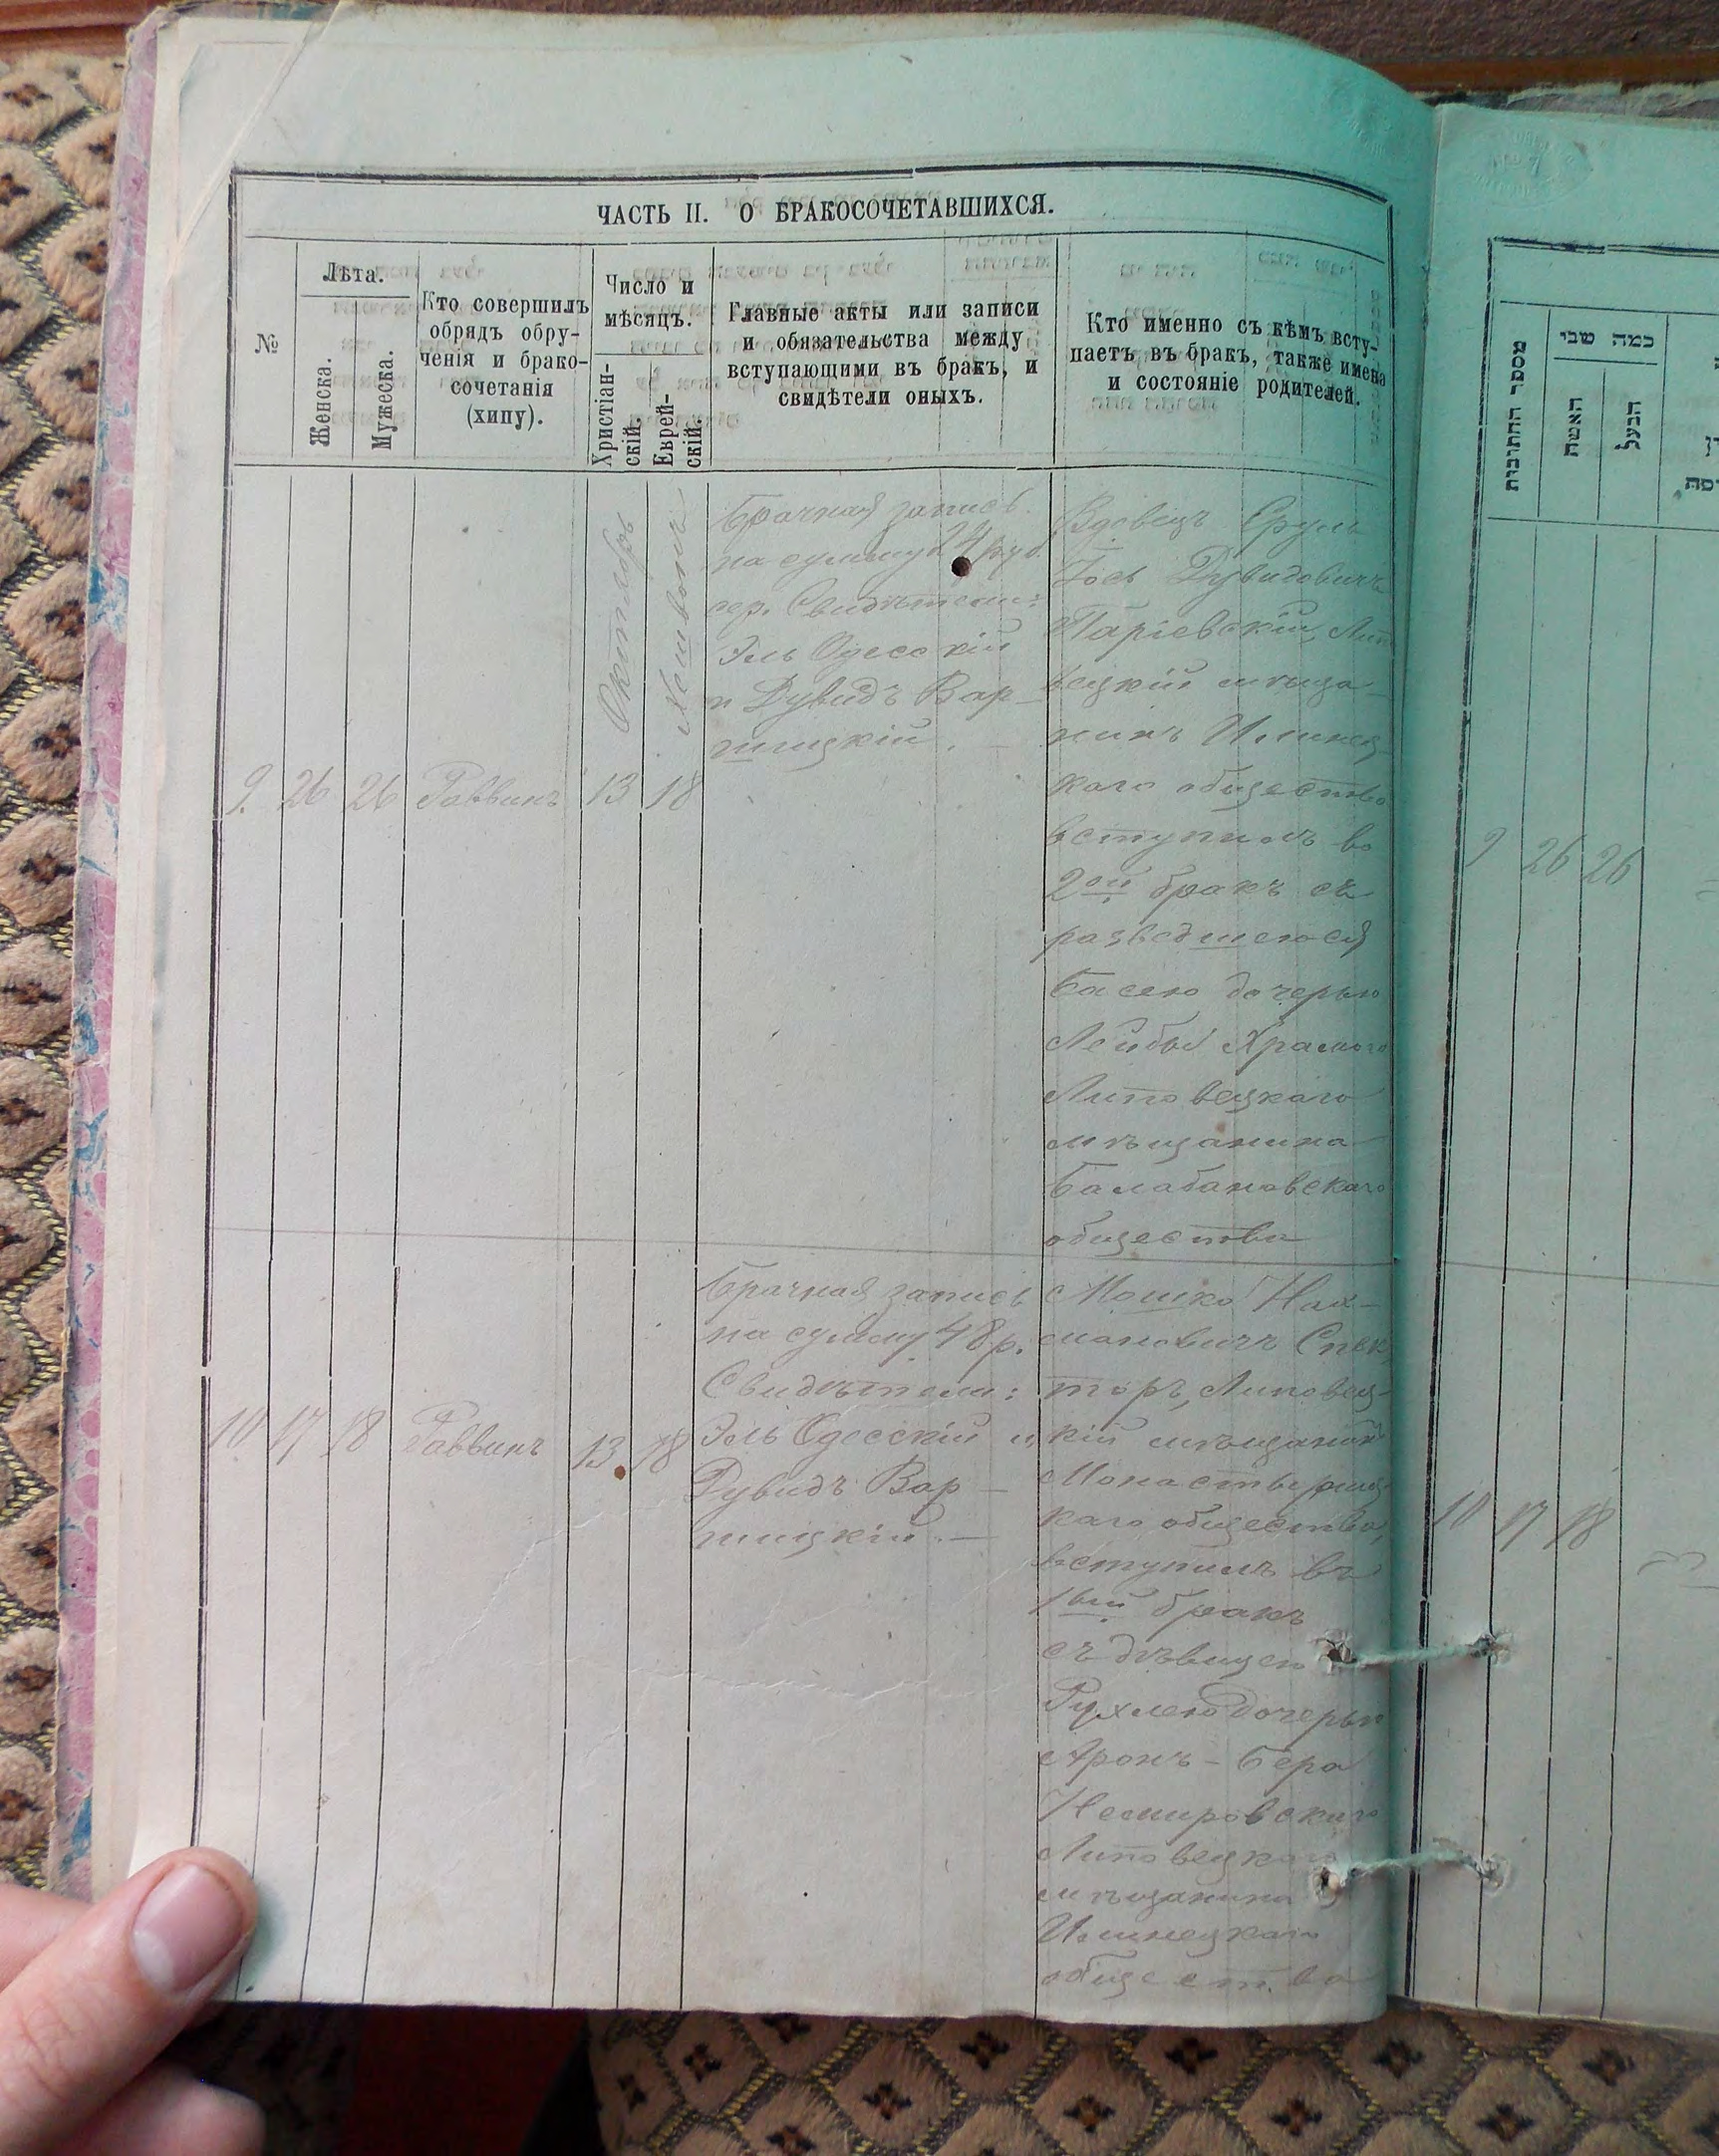 ЧАСТЬ II. О БРАКОСОЧЕТАВШИХСЯ.
№
Лѣта.
Женска.
Мужеска.
Кто совершилъ
обрядъ обру-
ченія и брако-
сочетанія
(хипу).
Число и
мѣсяцъ.
Христіан-
скій.
Еврей-
скій.
Главные акты или записи
и обязательства между
вступающими въ бракъ, и
свидѣтели оныхъ.
Кто именно съ кѣмъ всту-
паетъ въ бракъ, также имена
и состояніе родителей.
9. 26 26 Раввинъ
Октябрь
13 18
Брачная запись
на сумму 24 руб.
сер. Свидѣтели:
Эль Одесскій
и Дувидъ Вар-
шицкій.
Вдовецъ Сруль
Іось Дувидовичъ
Паріевскій, Лип
вецкій мѣща-
нинъ Илинец-
каго общества
вступилъ во
2ой бракъ съ
разведшеюся
Басею дочерью
Лейбы Храмого
Липовецкаго
мѣщанина
Балабановскаго
общества
10 17 18 Раввинъ 13 18
Брачная запись
на сумму 48 р.
Свидѣтели:
Эль Одесскій и
Дувидъ Вар-
шицкій. —
Мошко Нах-
мановичъ Спек
торъ, Липовец-
кій мѣщанинъ
Монастырищ
каго общества,
вступилъ въ
1вый бракъ
съ дѣвицею
Рухлею дочерью
Аронъ-Бера
Немировскаго
Липовецкаго
мѣщанина
Илинецкаго
общества
מספר החתונות
כמה שני
האשה
הבעל
9 26 26
10 17 18